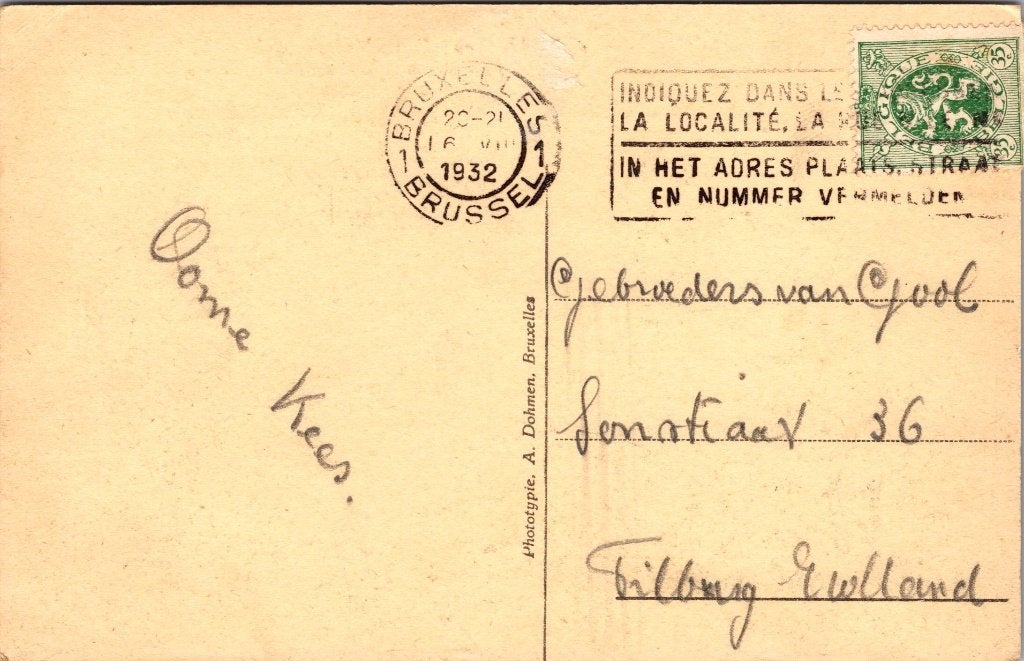 BRUXELLES
1 1
20-21
16 VIII
1932
BRUSSEL
INDIQUEZ DANS L
LA LOCALITÉ, LA RUE
IN HET ADRES PLAATS, STRAAT
EN NUMMER VERMELDEN
35
BELGIQUE BELGIË
35
Oome
Kees.
Phototypie, A. Dohmen, Bruxelles
Gebroeders van Gool
36
Tilburg Holland